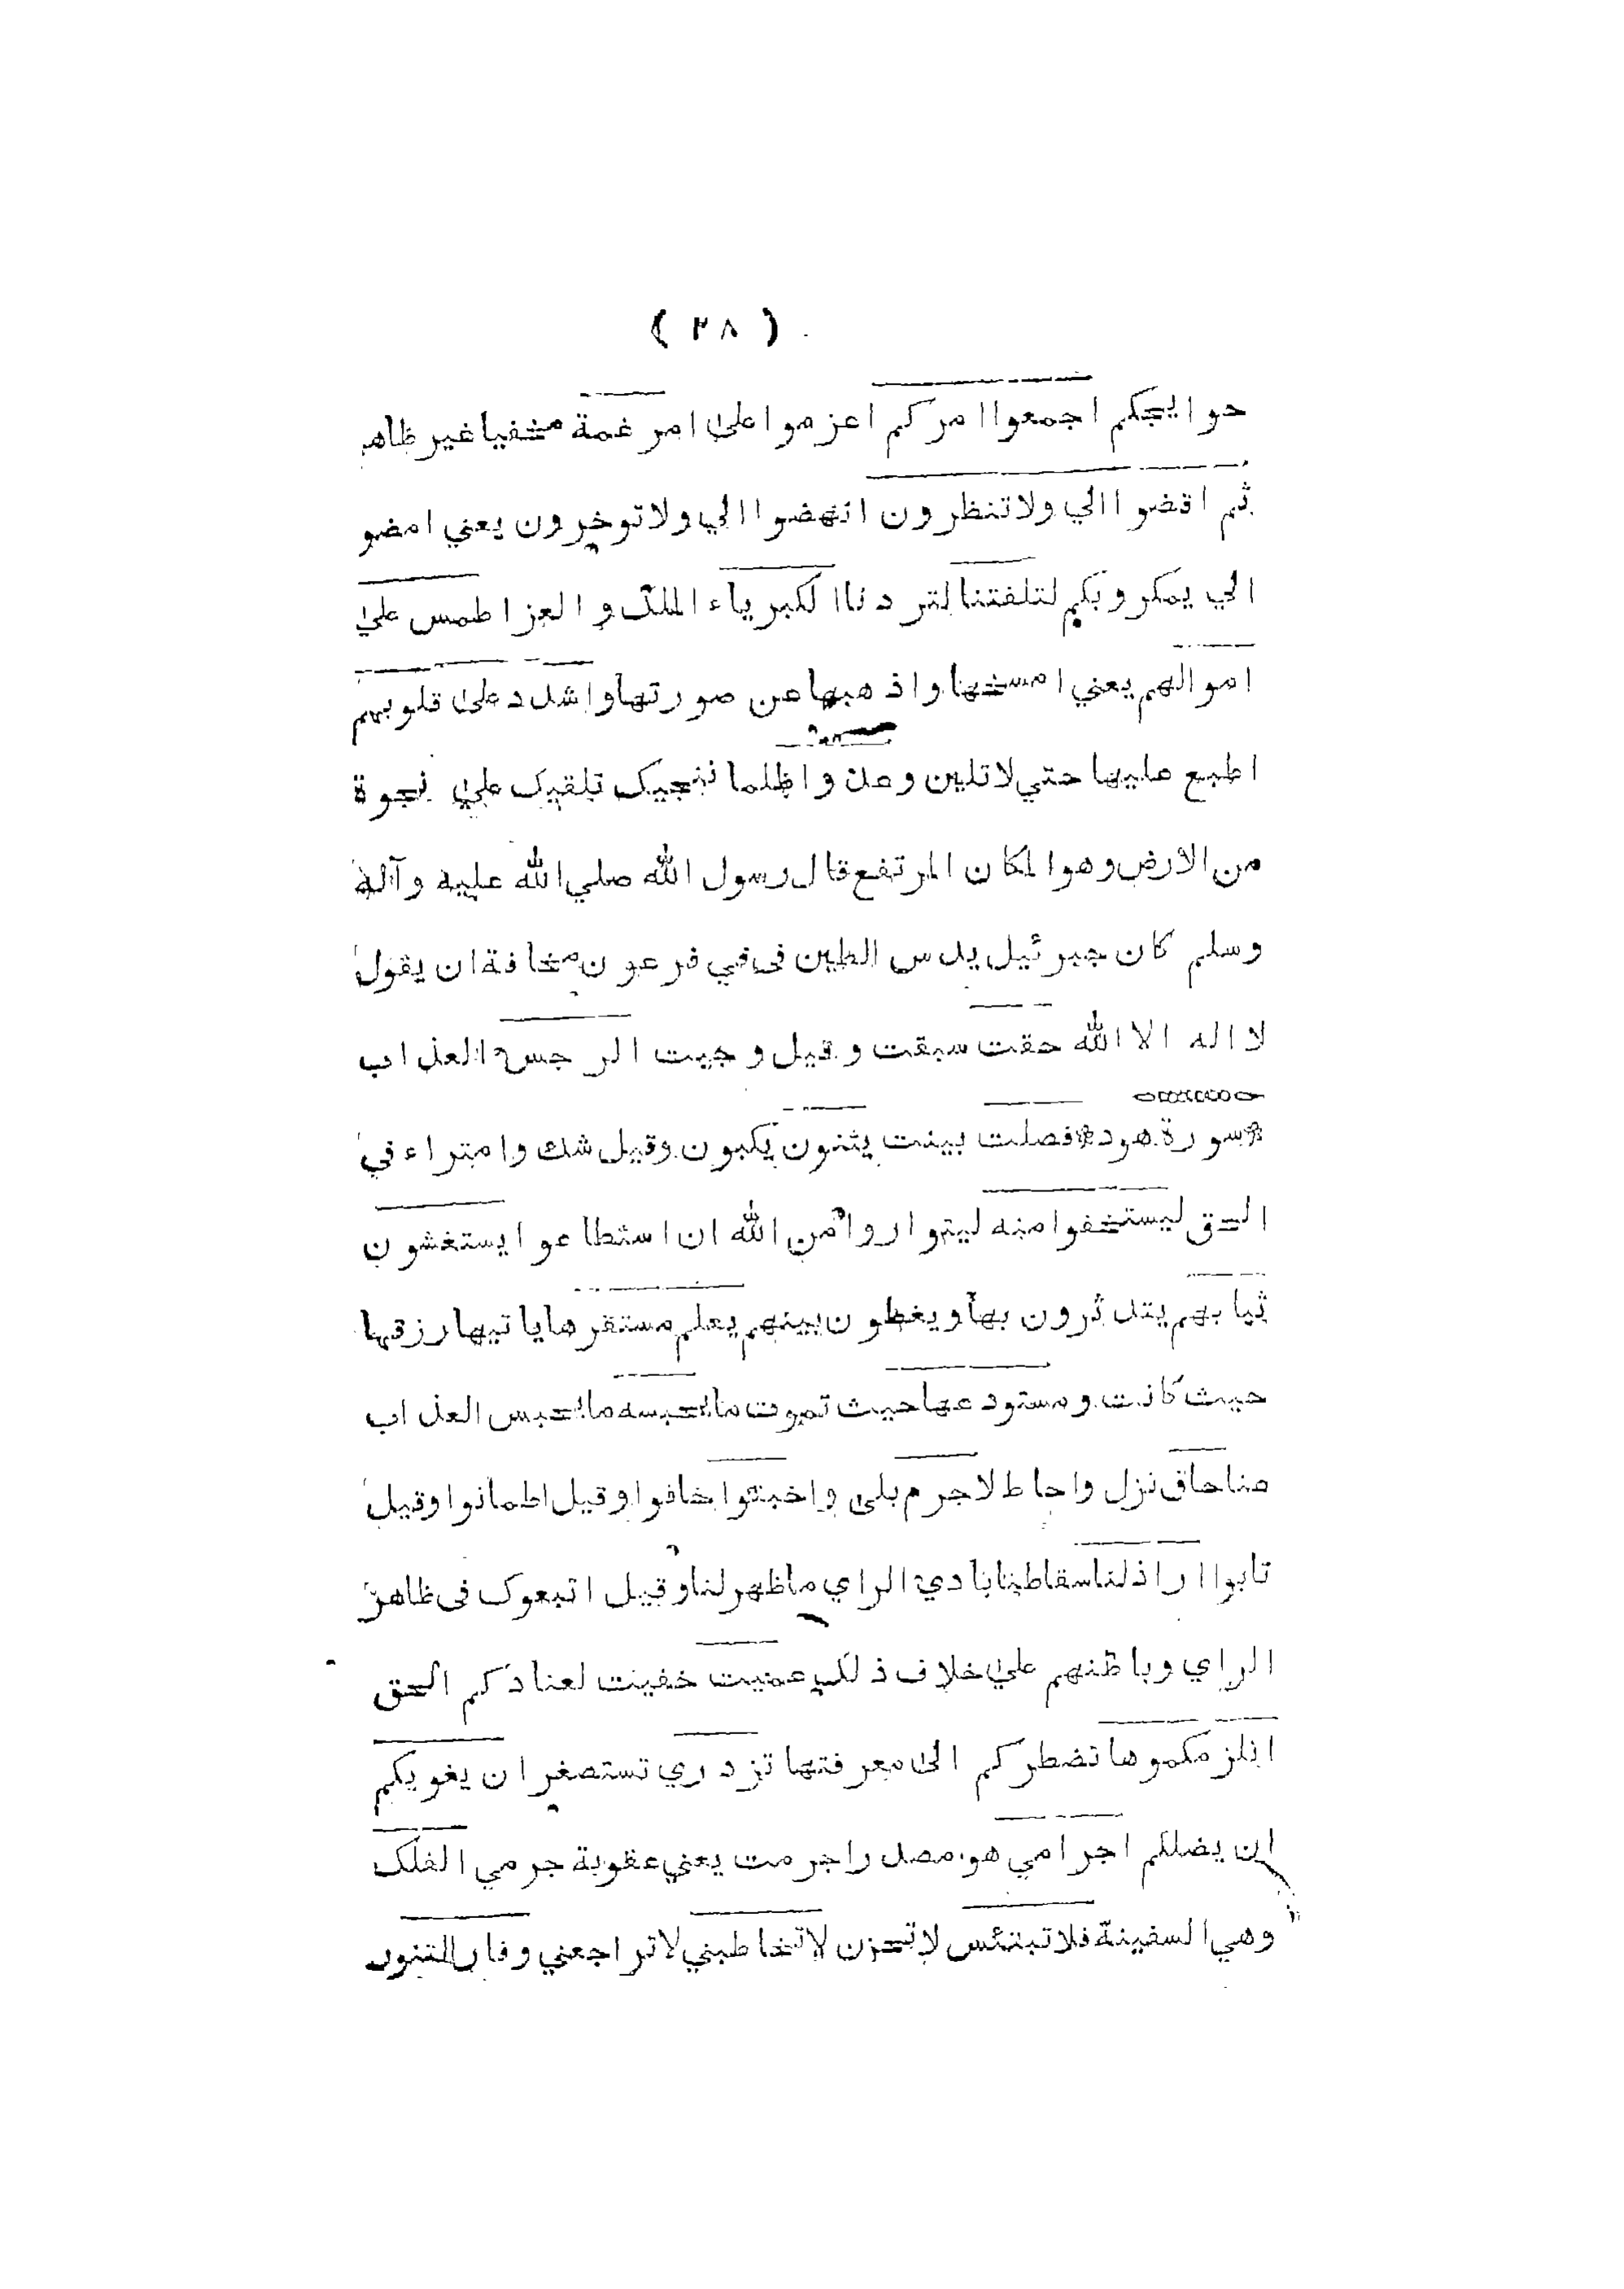 ( ٣٨ )
حوايجكم اجمعوا امركم اعزموا علىٰ امر غمة مخفيا غير ظاهر
ثم اقضوا الي ولا تنظرون انهضوا الي ولا توخرون يعني امضو
الي بمكروبكم لتلفتنا لتردنا الكبرياء الملك و العز اطمس علىٰ
اموالهم يعني امسخها واذهبها عن صورتها واشدد علىٰ قلوبهم
اطبع عليها حتي لا تلين وعدوا ظلما ننجيك تلقيك علىٰ نجوة
من الارض وهو المكان المرتفع قال رسول الله صلي الله عليه وآله
وسلم كان جبرئيل يدس الطين فى في فرعون مخافة ان يقول
لا اله الا الله حقت سبقت وقيل وجبت الرجس العذاب
سورة هود فصلت بينت يثنون يكبون وقيل شك وامتراء في
الحق ليستخفوا منه ليتواروا من الله ان استطاعوا يستغشون
ثيابهم يتدثرون بها ويغطون بينهم يعلم مستقرها ياتيها رزقها
حيث كانت ومستودعها حيث تموت ما يحبسه ما يحبس العذاب
عنا حاق نزل واحاط لاجرم بلى واخبتوا خافوا وقيل اطمانوا وقيل
تابوا اراذلنا سقاطنا بادي الراي ما ظهر لنا وقيل اتبعوك فى ظاهر
الراي وباطنهم علىٰ خلاف ذلك عميت خفيت لعنادكم الحق
انلزمكموها نضطركم الىٰ معرفتها تزدري تستصغر ان يغويكم
ان يضلكم اجرامي هو مصدر اجرمت يعني عقوبة جرمي الفلك
وهي السفينة فلا تبتئس لا تحزن لا تخاطبني لا تراجعني وفار التنور